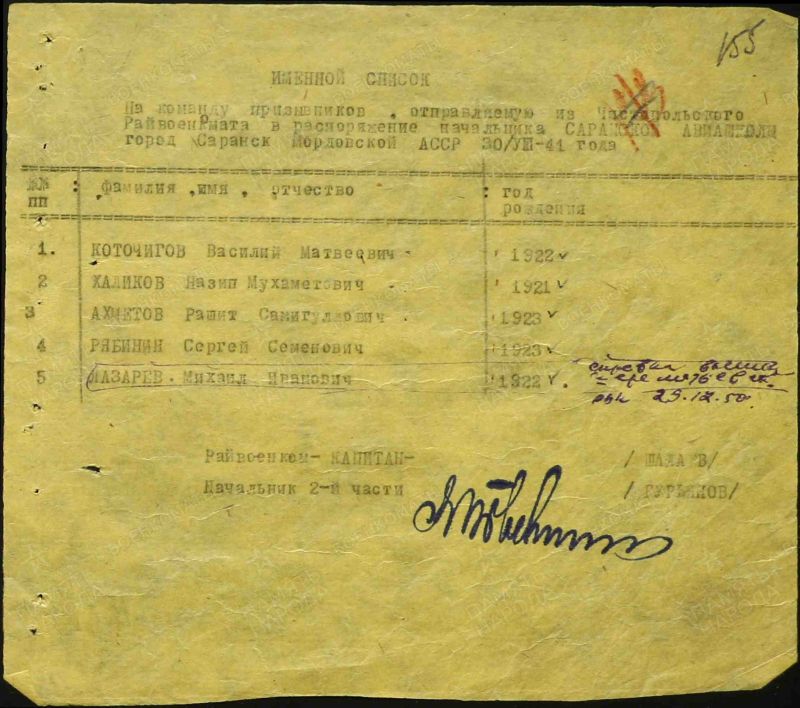 155
ИМЕННОЙ СПИСОК
На команду призывников , отправляемую из Чистопольского
Райвоенкомата в распоряжение начальника САРАНСКОЙ АВИАШКОЛЫ
город Саранск Мордовской АССР 30/УШ-41 года
№№ : фамилия , имя , отчество : год
пп рождения
1. КОТОЧИГОВ Василий Матвеевич 1922
2 ХАЛИКОВ Назип Мухаметович 1921
3 АХМЕТОВ Рашит Самигуллович 1923
4 РЯБИНИН Сергей Семенович 1923
5 ЛАЗАРЕВ Михаил Иванович 1922
29.12.50
Райвоенком- КАПИТАН- / В/
Начальник 2-й части / ГУРЬЯНОВ/